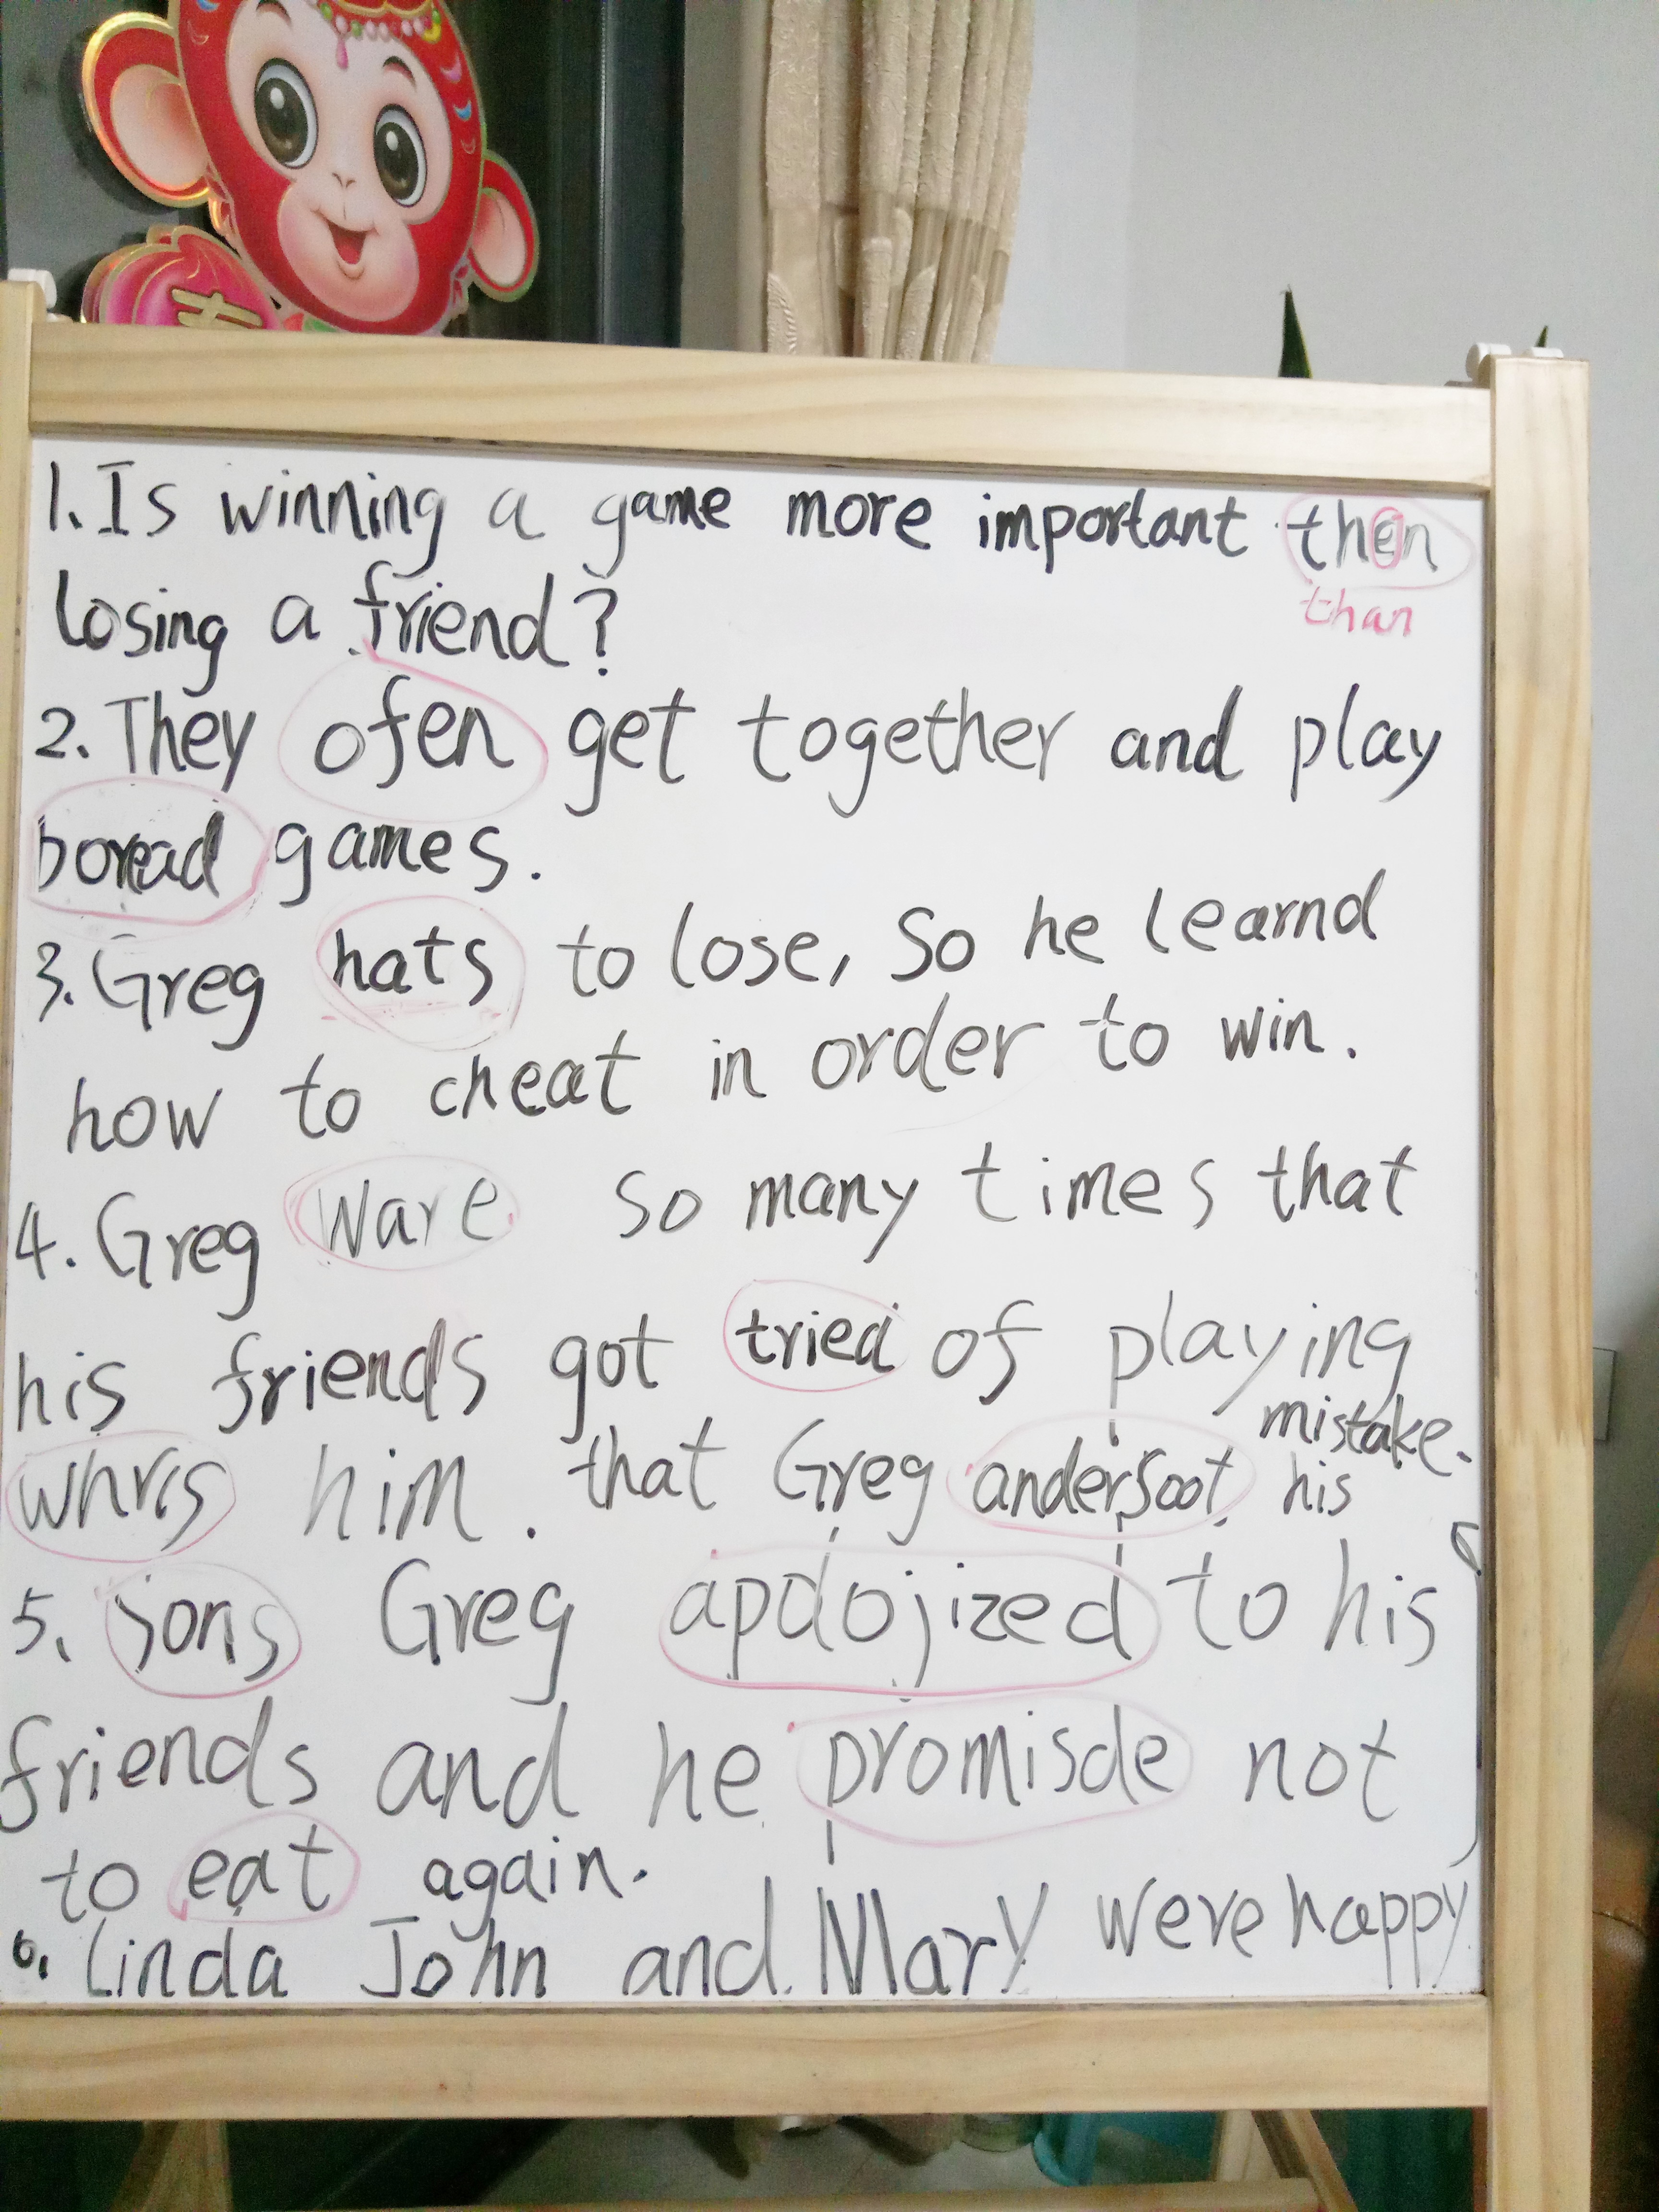 1. Is winning a game more important then
than
losing a friend?
2. They ofen get together and play
boread games.
3. Greg hats to lose, So he learnd
how to cheat in order to win.
4. Greg Ware so many times that
his friends got tried of playing
mistake.
whris him. that Greg andersoot his
5. sons Greg apdojized to his
friends and he promisde not
to eat again.
6. Linda John and Mary were happy